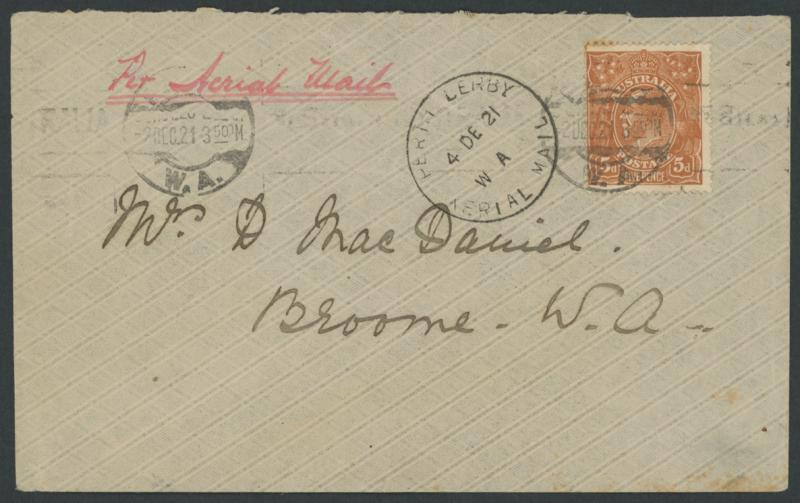 Per Aerial Mail
-2DEC.21 3 50PM
W.A.
PERTH DERBY
4 DE 21
W A
AERIAL MAIL
AUSTRALIA
5d POSTAGE 5d
FIVE PENCE
Mrs D MacDaniel.
Broome - W.A -